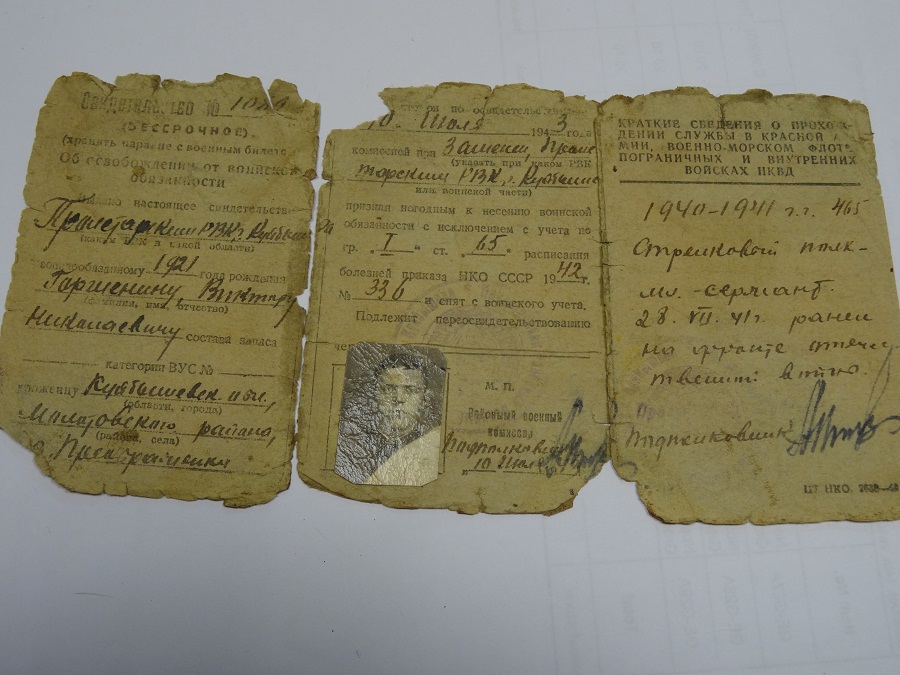 Свидетельство №
(БЕССРОЧНОЕ)
(хранить наравне с военным билетом
Об освобождении от воинской
обязанности
Выдано настоящее свидетельство
РВК, г. Куйбыш
(каким РВК и какой области)
военнообязанному 1921 года рождения
Гаршенину, Виктору
(фамилия, имя, отчество)
Николаевичу состава запаса
категории ВУС №
уроженцу Куйбышевск. обл.,
(области, города)
района,
(района, села)
с.
10. Июля 1943 года
комиссией при
(указать при каком РВК
РВК, г. Куйбышева
или воинской части)
признан негодным к несению воинской
обязанности с исключением с учета по
гр. I ст. 65 расписания
болезней приказа НКО СССР 1942 г.
№ 336 и снят с воинского учета.
Подлежит переосвидетельствованию
М. П.
Районный военный
комиссар
10 Июл
КРАТКИЕ СВЕДЕНИЯ О ПРОХОЖ-
ДЕНИИ СЛУЖБЫ В КРАСНОЙ А
МИИ, ВОЕННО-МОРСКОМ ФЛОТ
ПОГРАНИЧНЫХ И ВНУТРЕННИХ
ВОЙСКАХ НКВД
1940-1941 г.г. 465
Стрелковой полк-
мл.-сержант.
28. VII. 41 г. ранен
на фронте отече
твенной войны.